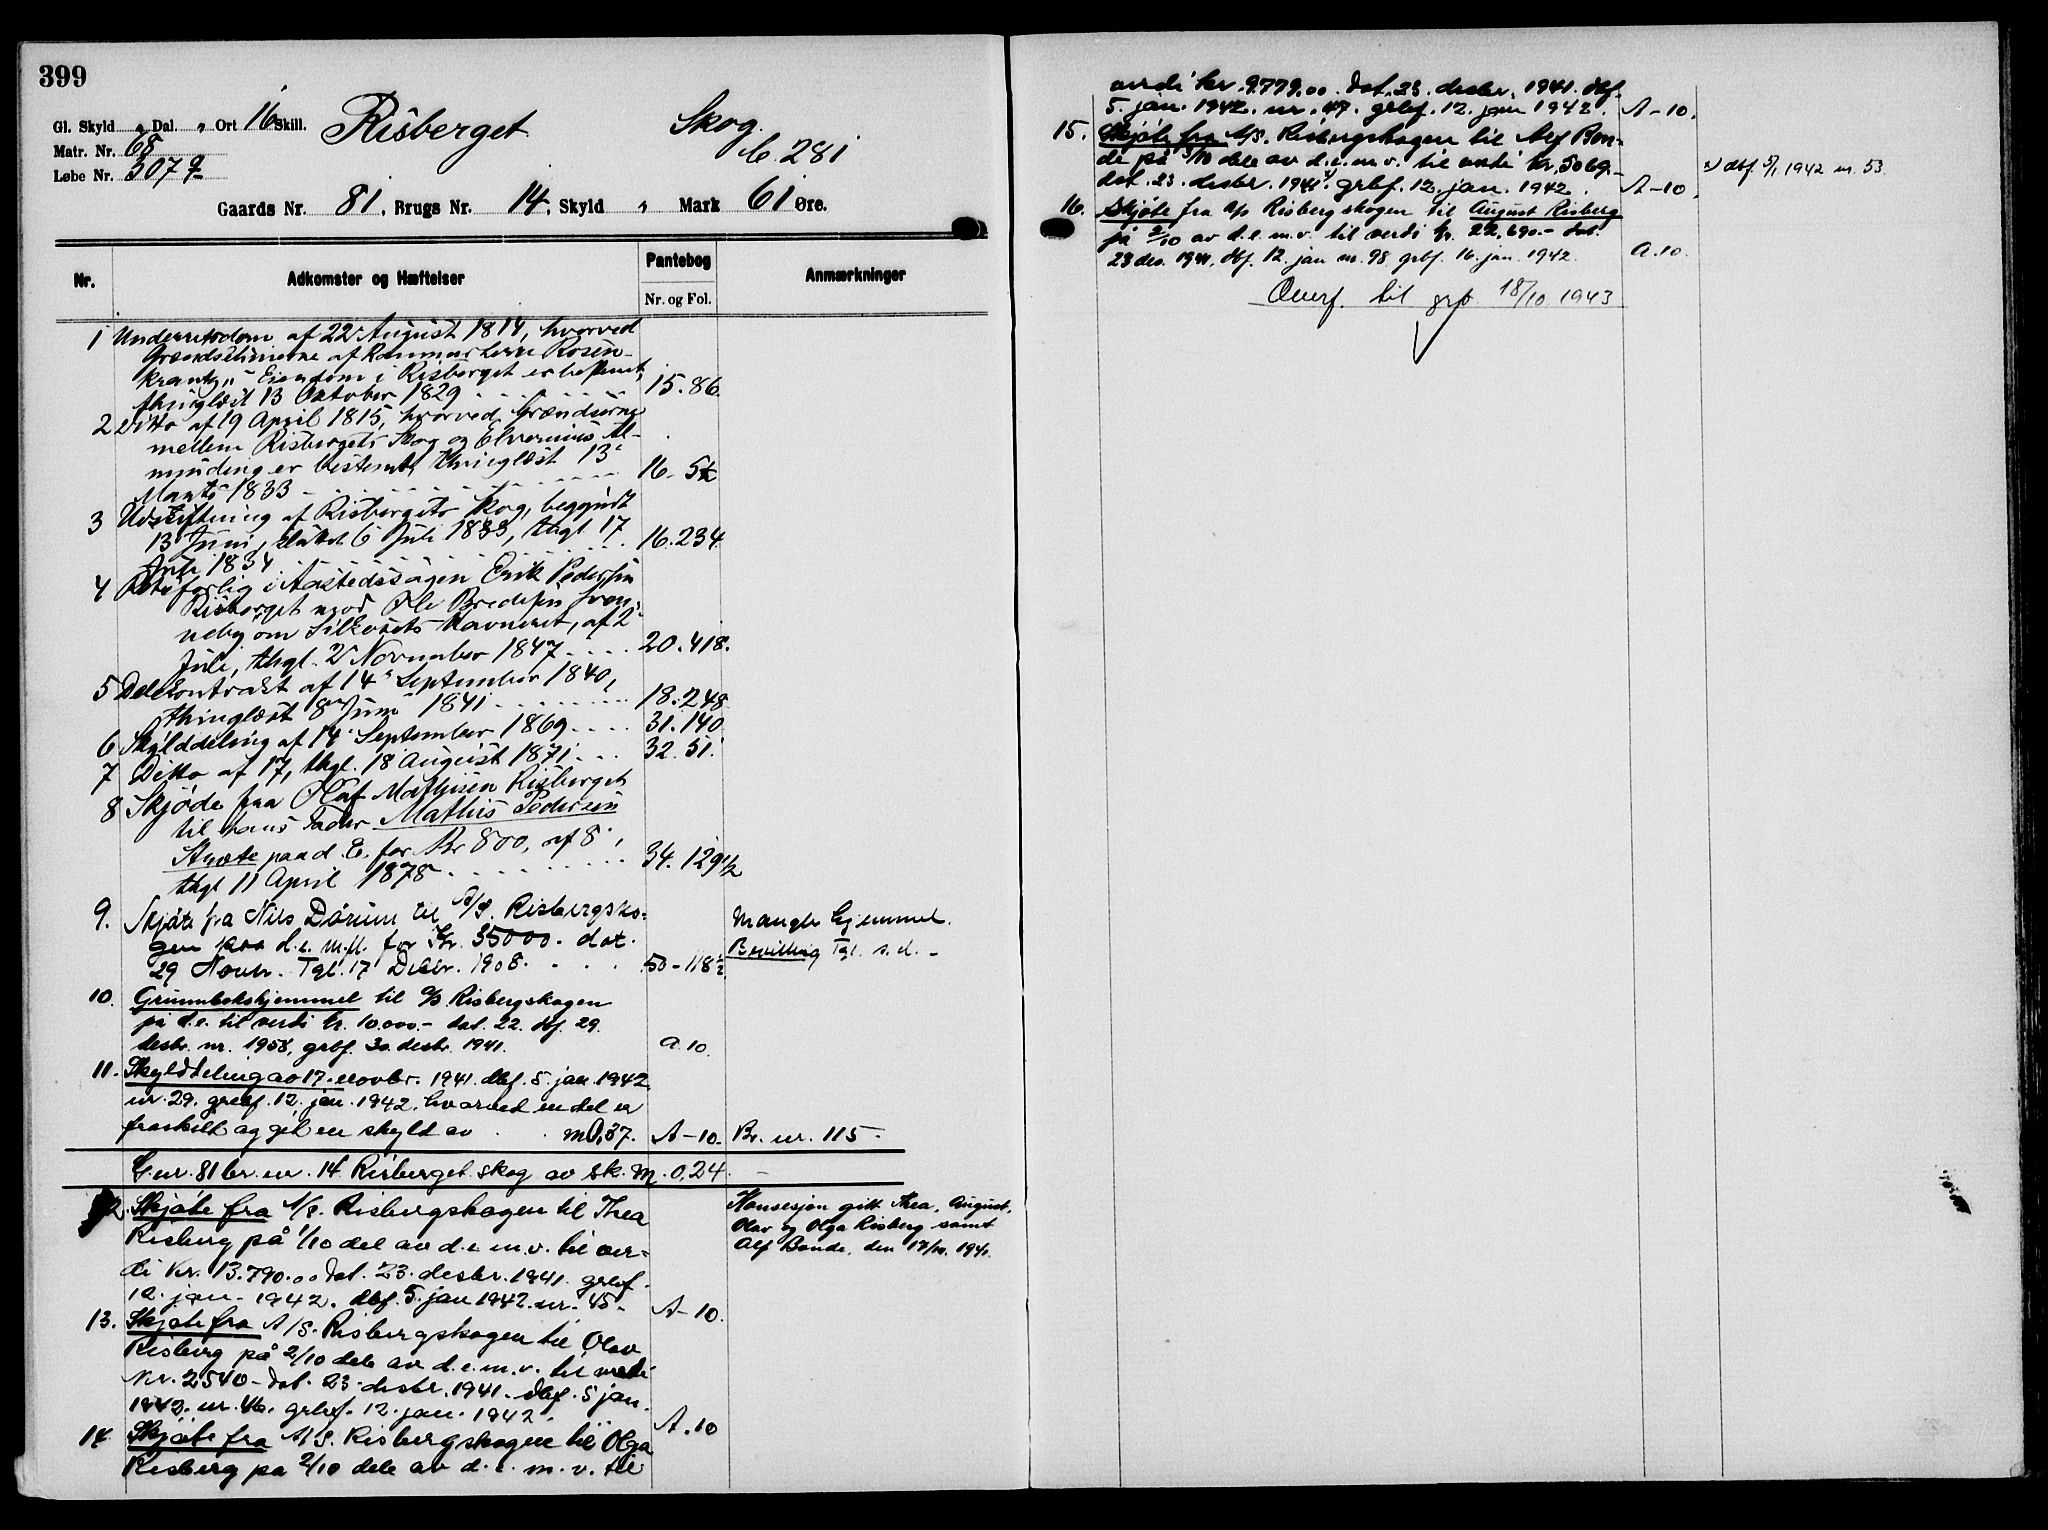 399
Gl. Skyld „ Dal. „ Ort 16 Skill.
Matr. Nr. 68
Løbe Nr. 307 q
Risberget Skog.
b. 281
Gaards Nr. 81, Brugs Nr. 14, Skyld „ Mark 61 Øre.
Nr. Adkomster og Hæftelser Pantebog Anmærkninger
Nr. og Fol.
1 Underretsdom af 22 August 1814, hvorved
Grændselinierne af Kammerherre Rosen-
krantz's Eiendom i Risberget er bestemt,
thinglæst 13 Oktober 1829 15. 86.
2 Ditto af 19 April 1815, hvorved Grændserne
mellem Risbergets Skog og Elverums Al-
minding er bestemt, thinglæst 13
Marts 1833 16 - 5
3 Udskiftning af Risbergets Skog, begyndt
13 Juni, sluttet 6 Juli 1833, thgl 17
Juli 1834 16. 234.
4 Retsforlig i Aastedssagen Erik Pedersen
Risberget mod Ole Bredesen Sven-
neby om Silkosets Havneret, af 2
Juli, thgl. 2 November 1847 20. 418.
5 Delekontrakt af 14 September 1840,
thinglæst 8 Juni 1841 18. 248
6 Skylddeling af 14 September 1869 31. 140
7 Ditto af 17, thgl. 18 August 1871 32. 51.
8 Skjøde fra Olaf Mathisen Risberget
til hans Fader Mathis Pedersen
Stræte paa d. E. for Kr 800, af 8,
thgl 11 April 1878 34. 129 1/2
9. Skjøte fra Nils Dørum til A/S. Risbergsko-
gen paa d.e. m.fl. for Kr. 35000. dat.
29 Novbr. Tgl. 17 Decbr. 1908. 50 - 118 1/2
Mangler hjemmel.
Bevilling Tgl. s.d. -
10. Grunnbokshjemmel til A/S Risbergskogen
på d.e. til verdi kr. 10.000.- dat. 22. dbf. 29.
desbr. nr. 1958, grbf. 30. desbr. 1941. A. 10.
11. Skylddeling av 17. novbr. 1941. dbf. 5. jan. 1942
nr. 29. grbf. 12. jan. 1942. hvorved en del er
fraskilt og git en skyld av m 0,37. A - 10. Br. nr. 115.
G.nr. 81 br. nr. 14. Risberget skog av sk. m. 0,24. -
12. Skjøte fra A/S. Risbergskogen til Thea
Risberg på 1/10 del av d.e. m.v. til ver-
di kr. 13.790.00 dat. 23. desbr. 1941. grbf.
12. jan. 1942. dbf. 5. jan 1942. nr. 45. A - 10.
Konsesjon gitt Thea, August,
Olav og Olga Risberg samt
Alf Bonde, den 17/10. 1941.
13. Skjøte fra A/S. Risbergskogen til Olav
Risberg på 2/10 dele av d.e. m.v. til verdi
kr. 2540 - dat. 23. desbr. 1941. dbf. 5 jan.
1942. nr. 46. grbf. 12. jan. 1942. A. 10
14 Skjøte fra A/S. Risbergskogen til Olga
Risberg på 2/10 dele av d.e. m.v. til
verdi kr. 9.779.00 dat. 23. desbr. 1941. dbf.
5. jan. 1942. nr. 47. grbf. 12. jan 1942. A - 10.
15. Skjøte fra A/S. Risbergskogen til Alf Bon-
de på 3/10 dele av d.e. m.v. til verdi kr. 5069.-
dat. 23. desbr. 1941 x). grbf. 12. jan. 1942. A - 10.
x) dbf. 5/1 1942 nr. 53.
16. Skjøte fra A/S Risbergskogen til August Risberg
på 2/10 av d.e. m.v. til verdi kr. 22.690.- dat.
23 des. 1941, dbf. 12. jan nr. 98 grbf. 16. jan. 1942. A. 10.
Overf. til grb 18/10 1943